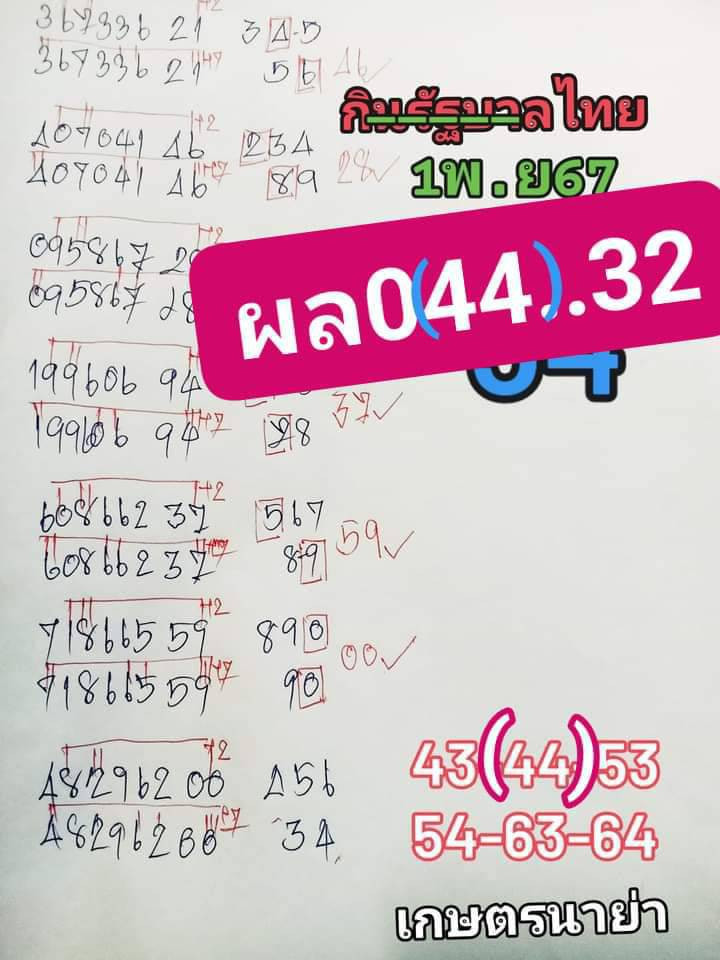 367336 21 +2 3 4-5
367336 21 +7 5 6 46
กินรัฐบาลไทย
407041 46 +2 234
407041 46 +7 89 28
1พ.ย67
095867 28
095867 28
ผล0(44)..32
64
199606 94
199606 94 +7 28 37
608662 37 +2 567
608662 37 89 59
718665 59 +2 890
718665 59 +7 90 00
482962 00 +2 456
482962 00 +7 34
43(44)53
54-63-64
เกษตรนาย่า